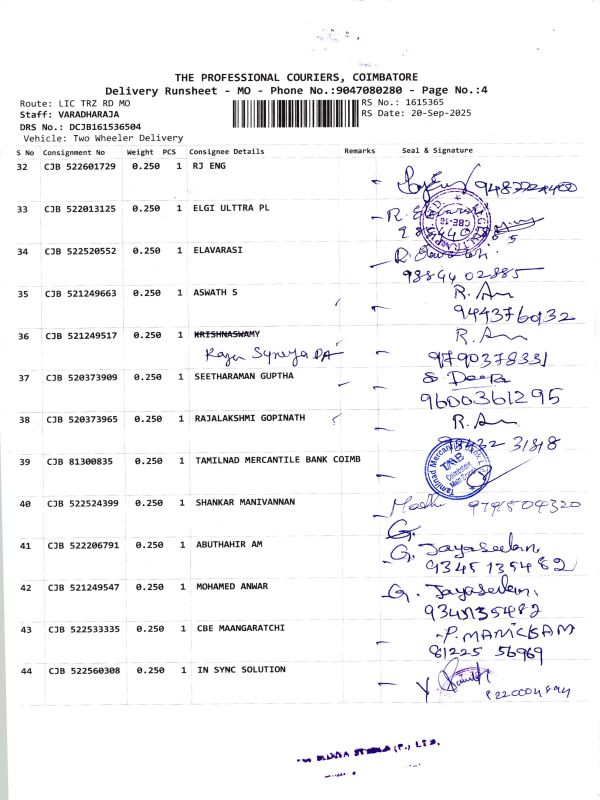 THE PROFESSIONAL COURIERS, COIMBATORE
Delivery Runsheet - MO - Phone No.:9047080280 - Page No.:4
Route: LIC TRZ RD MO RS No.: 1615365
Staff: VARADHARAJA RS Date: 20-Sep-2025
DRS No.: DCJB161536504
Vehicle: Two Wheeler Delivery
S No Consignment No Weight PCS Consignee Details Remarks Seal & Signature
32 CJB 522601729 0.250 1 RJ ENG
33 CJB 522013125 0.250 1 ELGI ULTTRA PL
34 CJB 522520552 0.250 1 ELAVARASI
98844 02885
35 CJB 521249663 0.250 1 ASWATH S
9443760132
36 CJB 521249517 0.250 1 KRISHNASWAMY
9790378331
37 CJB 520373909 0.250 1 SEETHARAMAN GUPTHA Deepa
9600361295
38 CJB 520373965 0.250 1 RAJALAKSHMI GOPINATH
39 CJB 81300835 0.250 1 TAMILNAD MERCANTILE BANK COIMB
40 CJB 522524399 0.250 1 SHANKAR MANIVANNAN 9791504320
41 CJB 522206791 0.250 1 ABUTHAHIR AM G. Jayaseelan,
93451 35482
42 CJB 521249547 0.250 1 MOHAMED ANWAR G. Jayaseelan,
9345135482
43 CJB 522533335 0.250 1 CBE MAANGARATCHI P. MANICKAM
81225 56969
44 CJB 522560308 0.250 1 IN SYNC SOLUTION